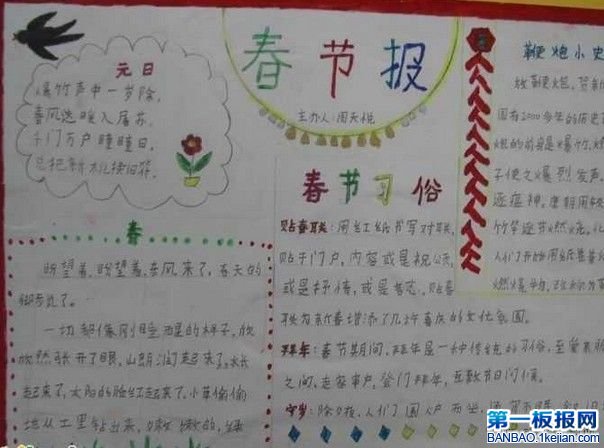 元日
爆竹声中一岁除,
春风送暖入屠苏。
千门万户曈曈日,
总把新桃换旧符。
春节报
主办人:周天
春
盼望着,盼望着,东风来了,春天的
脚步近了。
一切都像刚睡醒的样子,欣
欣然张开了眼,山朗润起来了,水长
起来了,太阳的脸红起来了。小草偷偷
地从土里钻出来,嫩嫩的,绿
春节习俗
贴春联:用红纸书写对联,
贴于门户,内容或是祝
或是抒情,或是言志。贴春
联为新春增添了几许喜庆的文化氛围。
拜年:春节期间,拜年是一种传统的习俗,至爱亲
之间,走家串户,登门拜年,互致节日问候。
守岁:除夕夜,人们围炉而坐
鞭炮小史
放鞭炮,贺新
国有2000多年的历史了
炮的前身是爆竹,
子使之爆烈发声,
逐瘟神,唐朝用
竹竿逐节燃烧,
人们开始用纸
燃爆物,
第一板报网
BANBAO.1kejian.com